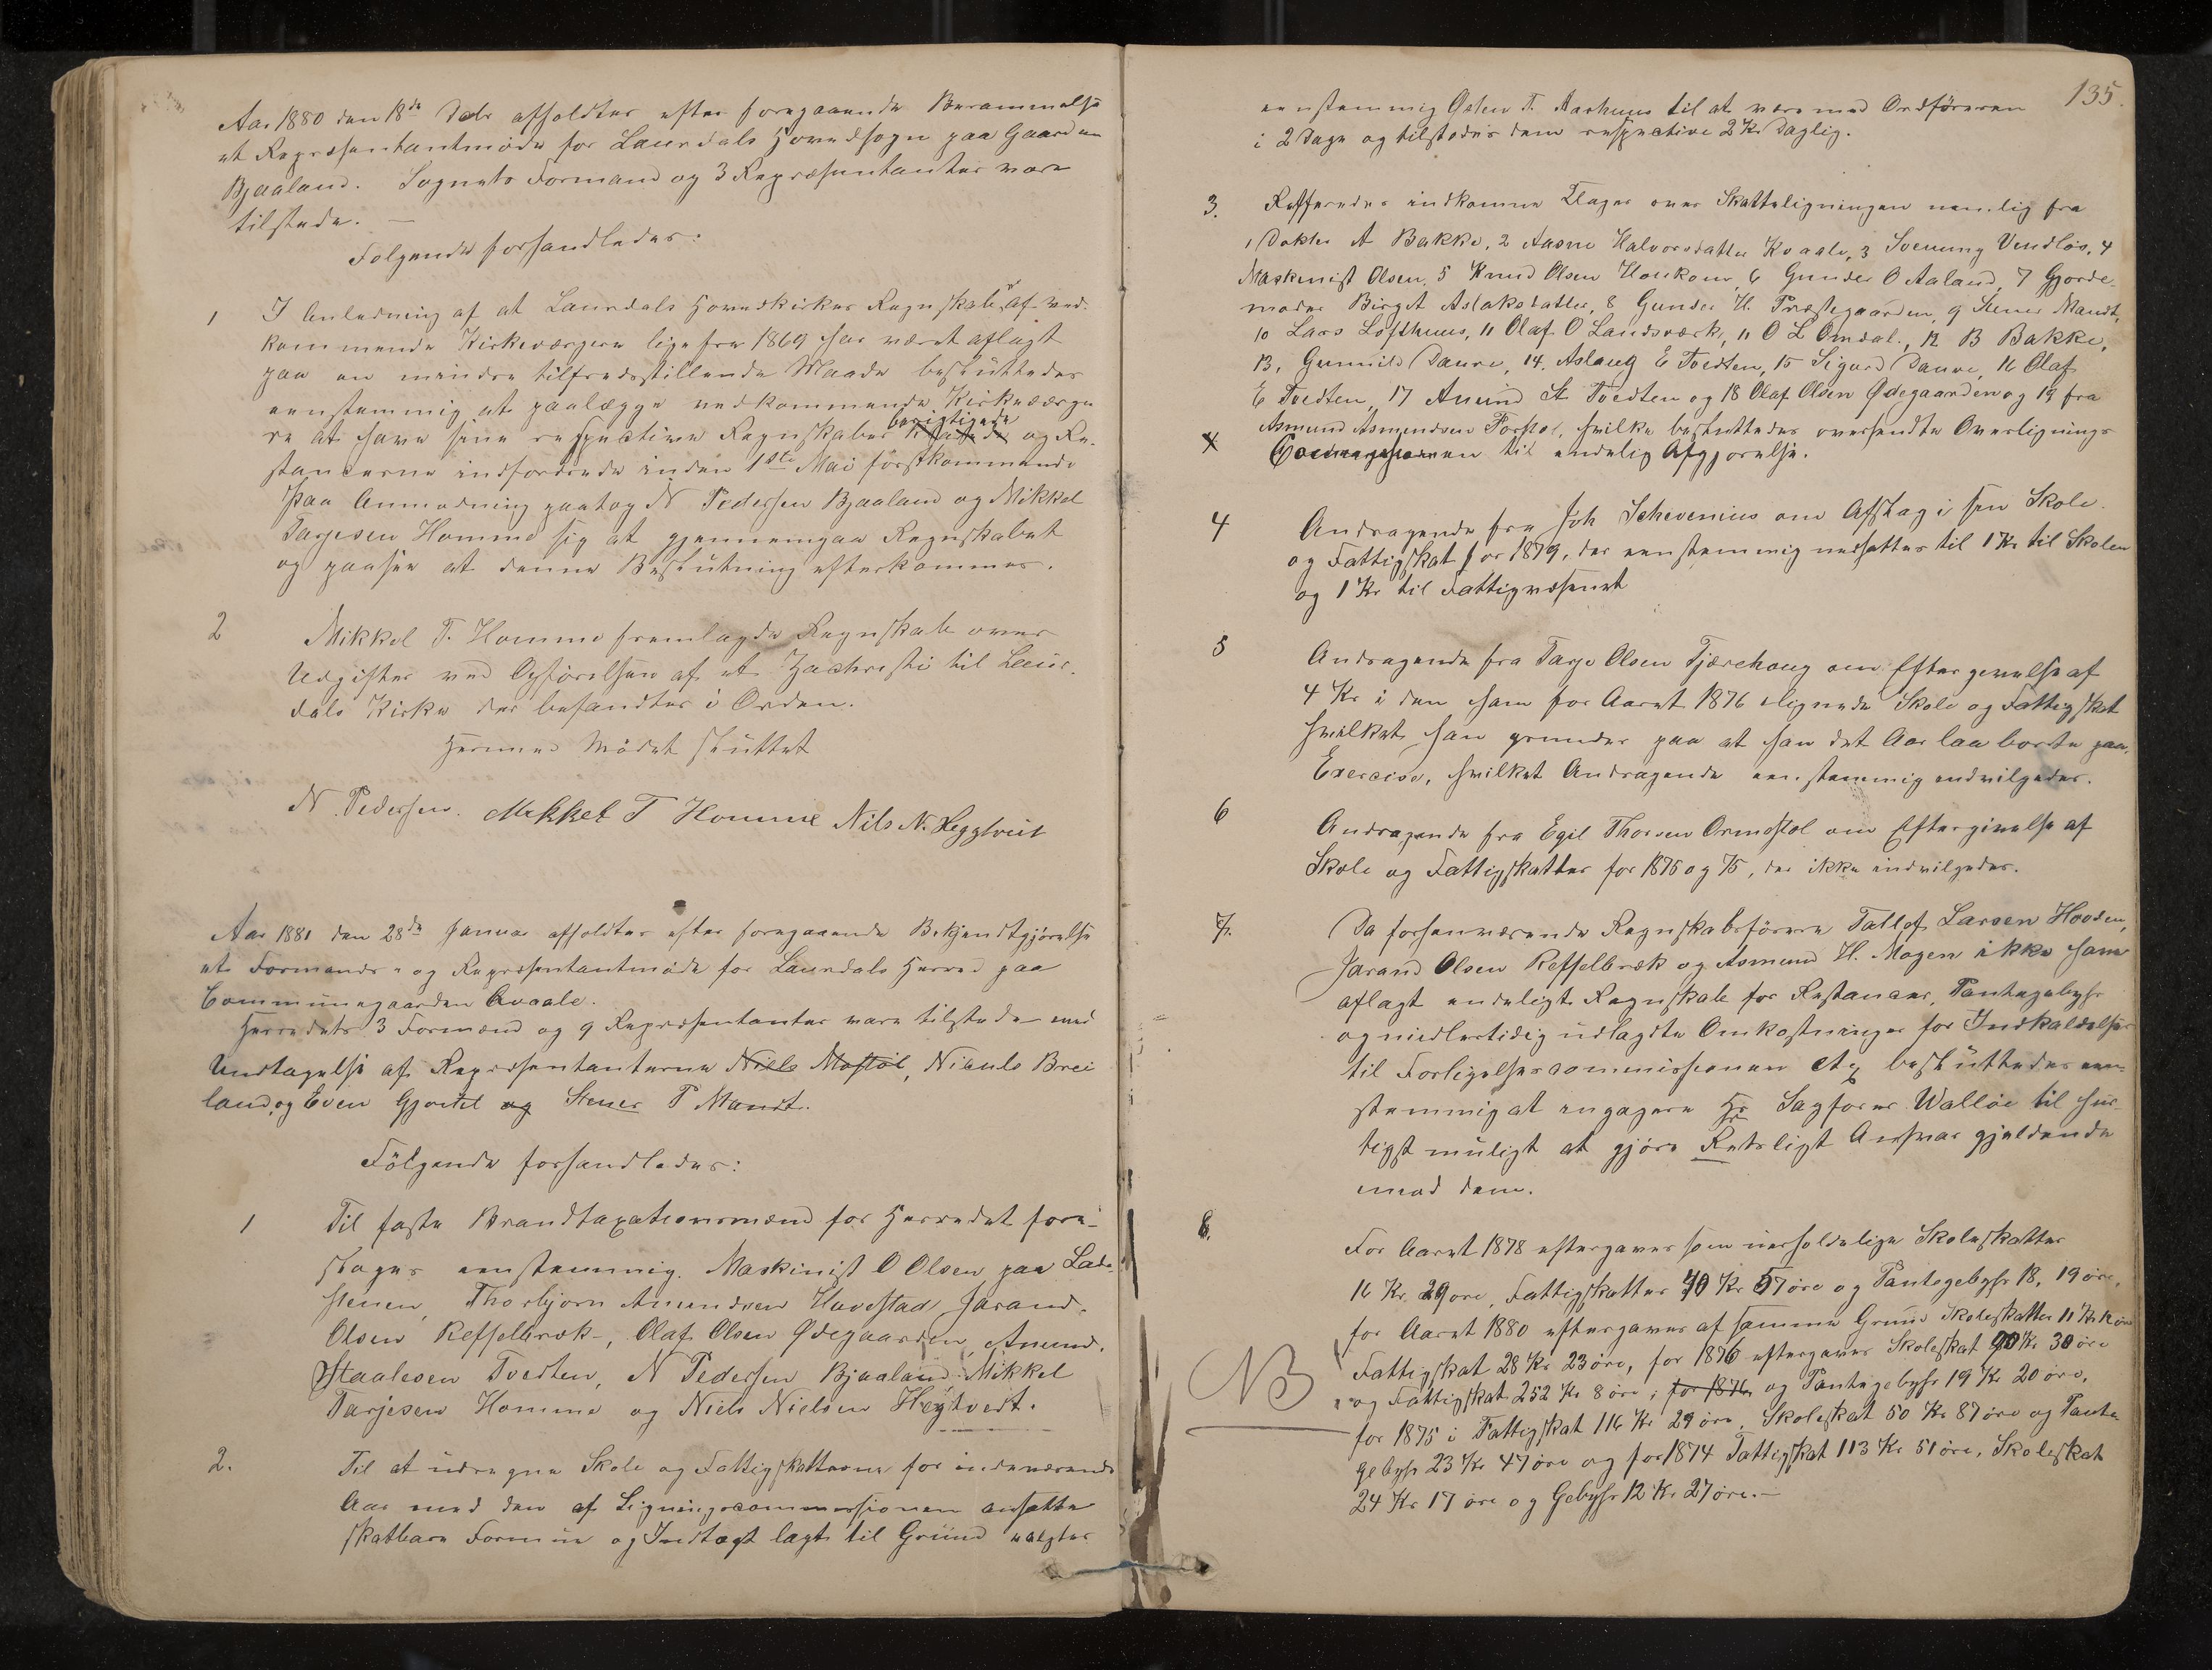 Aar 1880 den 18de Debr afholdtes efter foregaaende Berammelse
et Repræsentantmøde for Laurdals Hovedsogn paa Gaarden
Bjaaland. Sognets Formand og 3 Repræsentanter vare
tilstede. —
Følgende forhandledes:
1 I Anledning af at Laurdals Hovedkirkes Regnskaber af ved-
kommende Kirkeværgere lige fra 1869 har været aflagt
paa en mindre tilfredsstillende Maade besluttedes
eenstemmig at paalægge vedkommende Kirkeværge
berigtigede
re at have sine respective Regnskaber og Re-
stancerne indfordrede inden 1ste Mai førstkommende
Paa Anmodning paatog N Pedersen Bjaaland og Mikkel
Tarjesen Homme sig at gjennemgaa Regnskabet
og paasee at denne Beslutning efterkommes.
2 Mikkel T. Homme fremlagde Regnskab over
Udgifter ved Opførelsen af et til Laur-
dals Kirke der befandtes i Orden.
Hermed Mødet sluttet
N. Pedersen. Mikkel T Homme Nils N. Heggtveit
Aar 1881 den 28de Januar afholdtes efter foregaaende Bekjendtgjørelse
et Formands- og Repræsentantmøde for Laurdals Herred paa
Communegaarden Kvaale.
Herredets 3 Formænd og 9 Repræsentanter vare tilstede med
Undtagelse af Repræsentanterne Niels Mostøl, Nikuls Brei
land, og Even Gjortil og Stener P Mandt.
Følgende forhandledes:
1 Til faste Brandtaxationsmænd for Herredet fore-
sloges eenstemmig. Maskinist O Olsen paa Lade-
stenen, Thorbjørn Amundsen Havestad, Jarand.
Olsen Reffelbræk, Olaf Olsen Ødegaarden, Amund.
Staalesen Tvedten, N Pedersen Bjaaland Mikkel
Tarjesen Homme og Niels Nielsen Hegtvedt.
2. Til at udregne Skole og Fattigskatterne for indeværende
Aar med den af Ligningscommissionen ansatte
skatbare Formue og Indtægt lagt til Grund valgtes
135.
eenstemmig Østen T. Aarhuus til at være med Ordføreren
i 2 Dage og tilstodes dem respective 2 Kr Daglig.
3. Refferedes indkomne Klager over Skatteligningen nemlig fra
1 Dokter A Bakke, 2 Aasne Halvorsdatter Kvaale, 3 Svenung Vindlös, 4
Maskinist Olsen, 5 Knud Olsen Haukom, 6 Gunder O Aaland, 7 Gjorde-
moder Birgit Aslaksdatter, 8 Gunder H. Præstegaarden, 9 Stener Mandt,
10 Lars Lofthuus, 11 Olaf O Landsværk, 11 O L Omdal., 12 B Bakke,
13, Gunnild Daure, 14. Aslaug E Tvedten, 15 Sigurd Daure, 16 Olaf
E Tvedten, 17 Amund St Tvedten og 18 Olaf Olsen Ødegaarden og 19 fra
Asmund Asmundsen, hvilke besluttedes oversendte Overlignings
Commissionen til endelig Afgjørelse.
4 Andragende fra Joh Schevenius om Afslag i sin Skole
og Fattigskat for 1879, der eenstemmig nedsattes til 1 Kr til Skolen
og 1 Kr til Fattigvæsenet
5 Andragende fra Tarje Olsen Tjærehoug om Eftergivelse af
4 Kr i den ham for Aaret 1876 ilignede Skole og Fattigskat
hvilket han grunder paa at han det Aar laa borte paa
Exercise, hvilket Andragende eenstemmig indvilgedes.
6 Andragende fra Egil Thorsen Ormostol om Eftergivelse af
Skole og Fattigskatter for 1876 og 75, der ikke indvilgedes.
7. Da forhenværende Regnskabsførere Tallef Larsen Hovden,
Jarand Olsen Reffelbræk og Asmund H. Mogen ikke have
aflagt endeligt Regnskab for Restancer, Pantegebyhr
og midlertidig udlagdte Omkostninger for Indkaldelser
til Forligelsescommissionen etc besluttedes een-
stemmig at engagere Hr Sagfører Walløe til hur-
tigst muligt at gjøre Retsligt Ansvar gjældende
mod dem.
8. For Aaret 1878 eftergaves som uerholdelige Skoleskatter
16 Kr. 29 øre, Fattigskatter 40 Kr 57 øre og Pantegebyhr 18, 19 øre,
for Aaret 1880 eftergaves af samme Grund Skoleskatter 11 Kr
Fattigskat 28 Kr 23 øre, for 1876 eftergaves Skoleskat 90 Kr 30 øre
NB og Fattigskat 252 Kr 8 øre, for 1876 og Pantegebyhr 19 Kr 20 øre,
for 1875 i Fattigskat 116 Kr 29 øre, Skoleskat 50 Kr 87 øre og Pante-
gebyhr 23 Kr 47 øre og for 1874 Fattigskat 113 Kr 51 øre, Skoleskat
24 Kr 17 øre og Gebyhr 12 Kr 27 øre. —